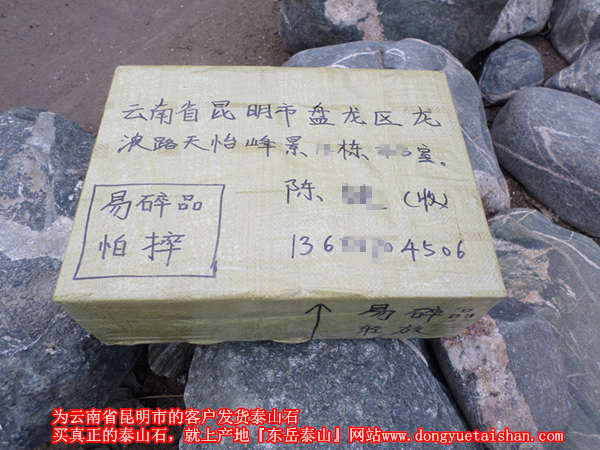 云南省昆明市盘龙区龙
波路天怡峰景 栋 室。
陈 (收)
136 70 4506
易碎品
怕摔
易碎品
为云南省昆明市的客户发货泰山石
买真正的泰山石，就上产地『东岳泰山』网站www.dongyuetaishan.com